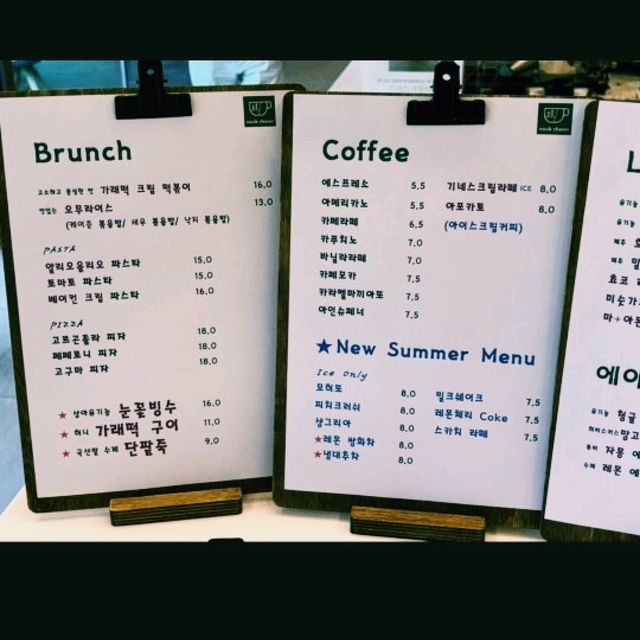 Brunch
고소하고 쫄깃한 맛 가래떡 크림 떡볶이 16.0
맛있는 오무라이스 13.0
(케이준 볶음밥/ 새우 볶음밥/ 낙지 볶음밥)
PASTA
알리오올리오 파스타 15.0
토마토 파스타 15.0
베이컨 크림 파스타 16.0
PIZZA
고르곤졸라 피자 18.0
페페로니 피자 18.0
고구마 피자 18.0
★ 상하유기농 눈꽃빙수 16.0
★ 허니 가래떡 구이 11.0
★ 국산팥 수제 단팥죽 9.0
Coffee
에스프레소 5.5
아메리카노 5.5
카페라떼 6.5
카푸치노 7.0
바닐라라떼 7.0
카페모카 7.5
카라멜마끼아또 7.5
아인슈페너 7.5
기네스크림라떼 ICE 8.0
아포카토 8.0
(아이스크림커피)
★New Summer Menu
Ice Only
모히또 8.0
피치크러쉬 8.0
상그리아 8.0
★레몬 쌍화차 8.0
★냉대추차 8.0
밀크쉐이크 7.5
레몬체리 Coke 7.5
스카치 라떼 7.5
L
유기농
유기농
제주
제주
효코
미숫가
마+아
에이
유기농 청귤
자몽 에
수제 레몬 에